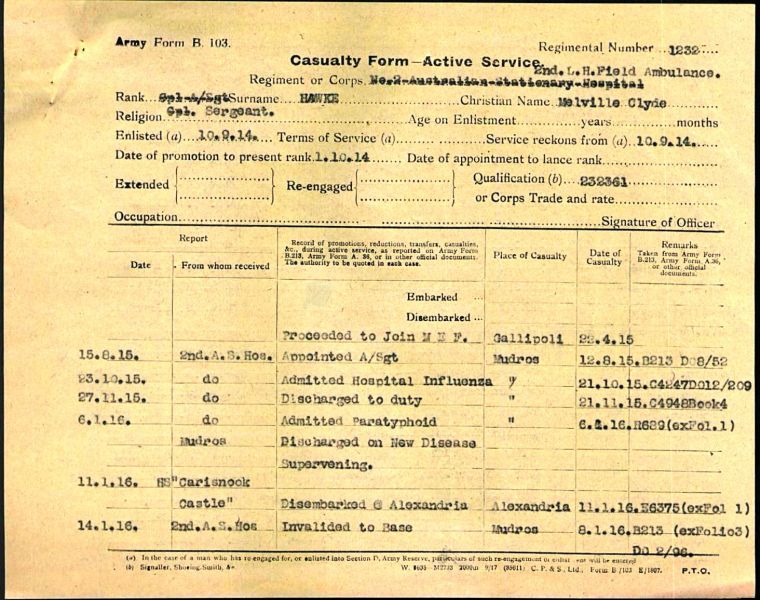 Army Form B. 103.
Regimental Number ..1232....
Casualty Form—Active Service.
2nd. L.H.Field Ambulance.
Regiment or Corps No.2-Australian-Stationary-Hospital
Rank Cpl-A/Sgt Surname HAWKE Christian Name Melville Clyde
Cpl. Sergeant.
Religion Age on Enlistment years months
Enlisted (a) 10.9.14. Terms of Service (a) Service reckons from (a) 10.9.14.
Date of promotion to present rank 1.10.14 Date of appointment to lance rank
Extended Re-engaged Qualification (b) 232361
or Corps Trade and rate
Occupation Signature of Officer
Report
Date From whom received
Record of promotions, reductions, transfers, casualties, &c., during active service, as reported on Army Form B.213, Army Form A. 36, or in other official documents. The authority to be quoted in each case.
Place of Casualty
Date of Casualty
Remarks
Taken from Army Form B.213, Army Form A.36, or other official documents.
Embarked ...
Disembarked ...
Proceeded to Join M E F. Gallipoli 22.4.15
15.8.15. 2nd.A.S.Hos. Appointed A/Sgt Mudros 12.8.15. B213 DO8/52
23.10.15. do Admitted Hospital Influenza " 21.10.15. C4247DO12/209
27.11.15. do Discharged to duty " 21.11.15. C4948Book4
6.1.16. do Admitted Paratyphoid " 6.1.16. R689(exFol.1)
Mudros Discharged on New Disease
Supervening.
11.1.16. HS"Carisnook
Castle" Disembarked @ Alexandria Alexandria 11.1.16. E6375(exFol 1)
14.1.16. 2nd.A.S.Hos Invalided to Base Mudros 8.1.16. B213 (exFolio3)
DO 2/96.
(a). In the case of a man who has re-engaged for, or enlisted into Section D, Army Reserve, particulars of such re-engagement or enlistment will be entered
(b) Signaller, Shoeing-Smith, &c. W. 8635 M2733 2000m 9/17 (35011) C. P. & S., Ltd., Form B/103 E/1807. P.T.O.